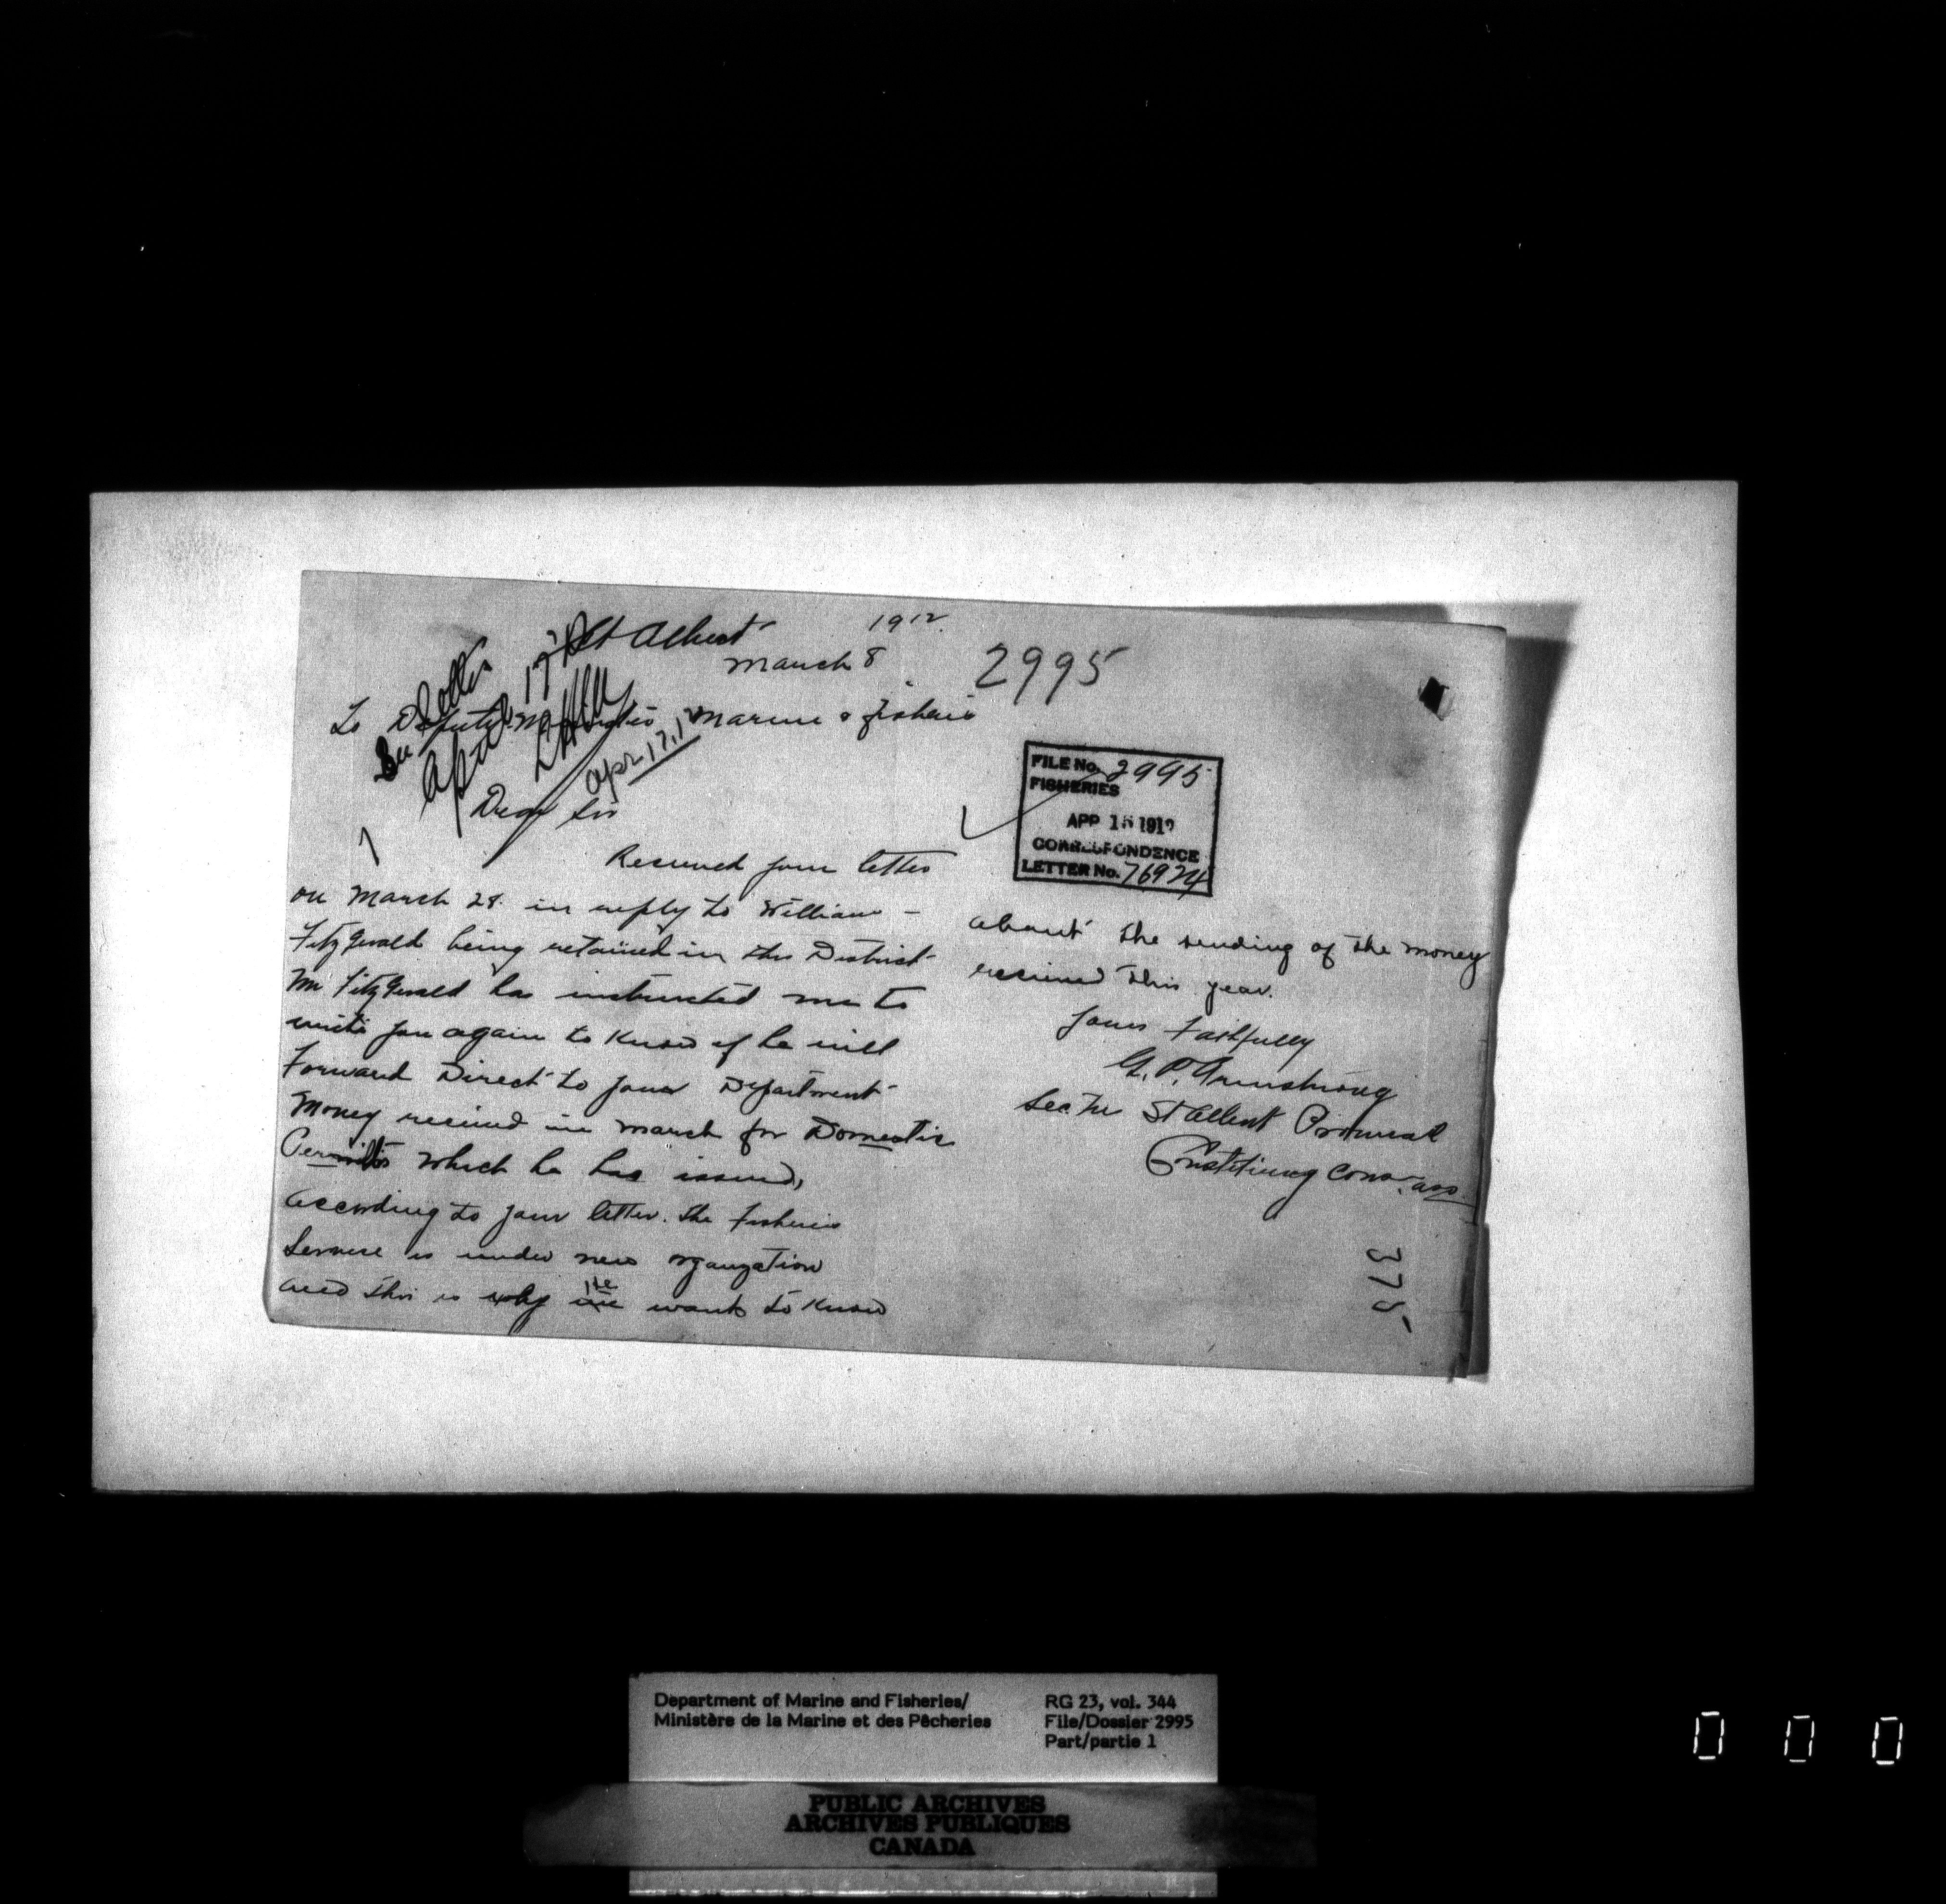 St Albert
1912
March 8
2995
To Deputy Minister Marine & Fisheris
See letter
April 17
Apr. 17, 12
Dear Sir
FILE No. 2995
FISHERIES
APR 15 1912
CORRESPONDENCE
LETTER No. 76924
Received your letter
on March 28. in reply to William -
FitzGerald being retained in this District
Mr FitzGerald has instructed me to
write you again to Know if he will
Forward Direct to your Department
Money received in March for Domestic
Permits which he has issued,
according to your letter. the Fisheries
Service is under new organization
and this is why he we wants to Know
about the sending of the money
received this year.
yours Faithfully
G. P. Armstrong
Sec. Tre St Albert Provincial
Constituency Cons. ass.
375
Department of Marine and Fisheries/
Ministère de la Marine et des Pêcheries
RG 23, vol. 344
File/Dossier 2995
Part/partie 1
PUBLIC ARCHIVES
ARCHIVES PUBLIQUES
CANADA
0 0 0